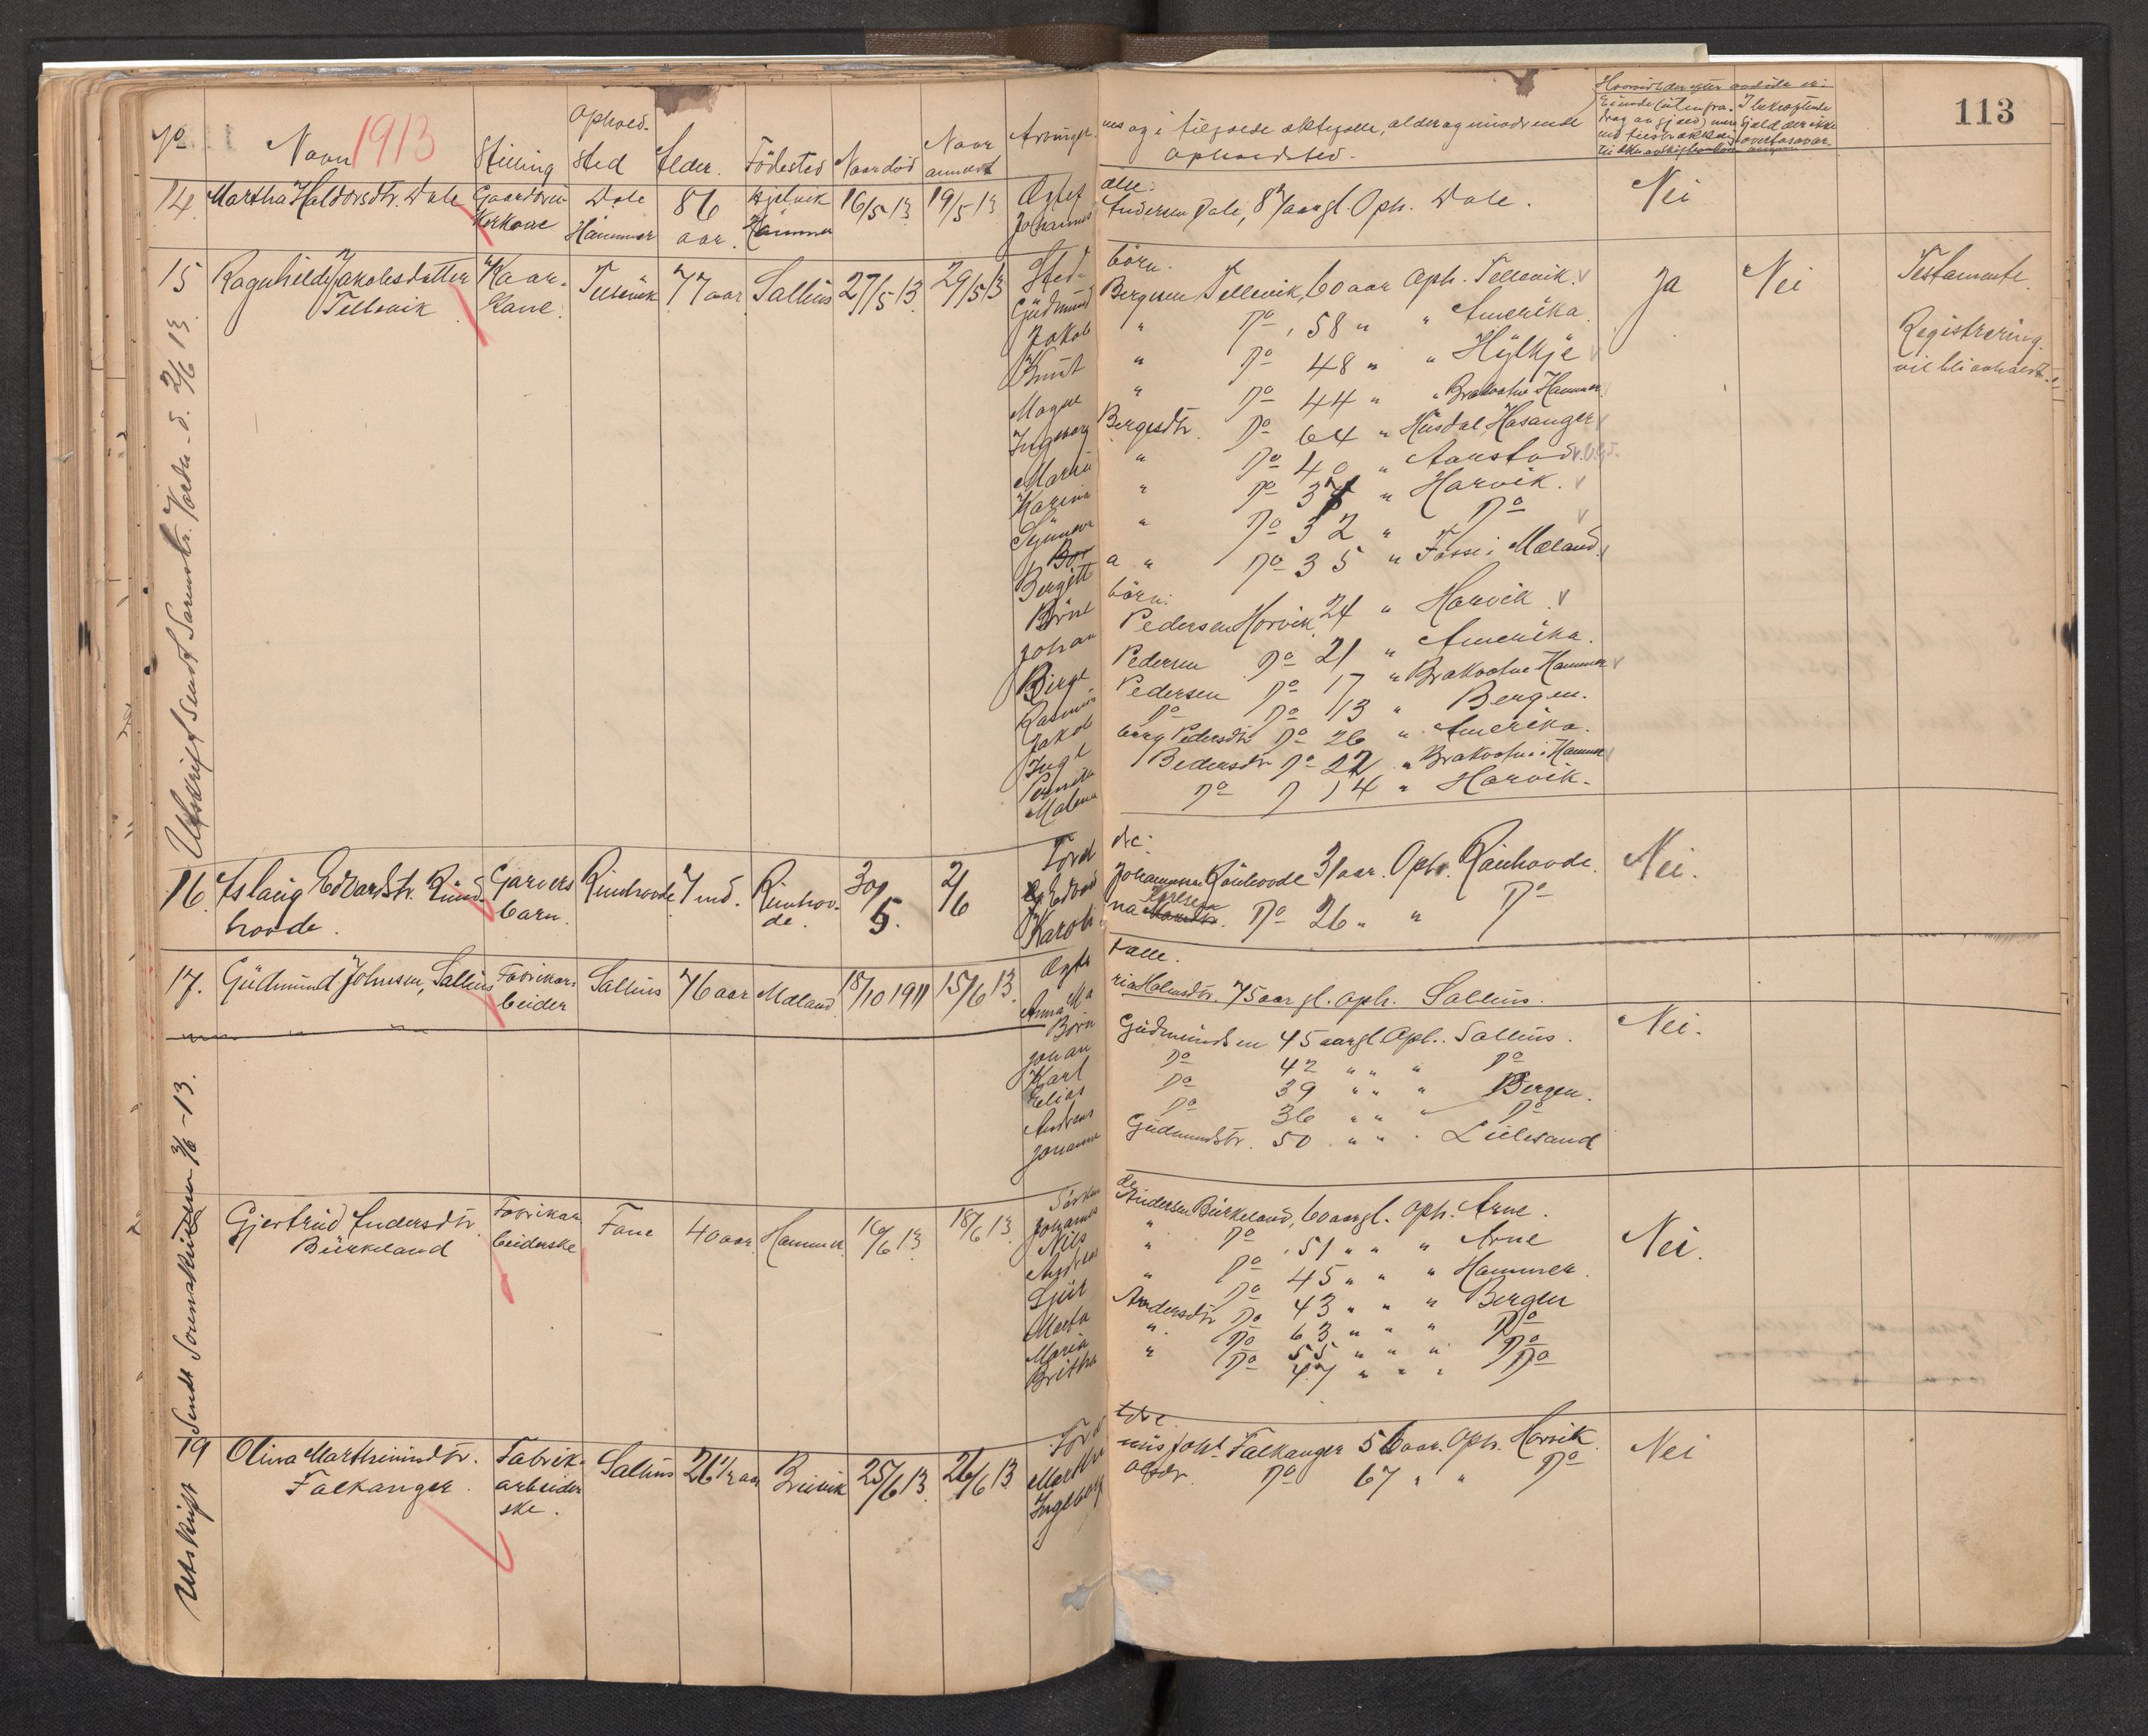 113
No Navn 1913 Stilling Ophold-sted Alder. Födested Naar död Naar anmeldt Arvinger-nes og i tilfælde ektefælle, alder og nuværende opholdsted.
14. Martha Haldorsdtr. Dale Gaardbru- Dale 86 Hjelvik 16/5 13 19/5 13 Ogtef ælle:
Kirkone Hammer aar. Hammer Johannes Andersen Dale, 87 aar gl. Oph. Dale. Nei
15 Ragnhilde Jakobsdatter Kaar- Tellevik 77 aar Salhus 27/5 13 29/5 13 Sted- börn.
Tellevik kone. Gudmund Bergesen Tellevik, 60 aar Oph. Tellevik. Ja Nei Testamente.
Jakob " Do, 58 " " Amerika.
Knut " Do 48 " " Hylkje Registrering
Magne " Do 44 " " Brakvatne Hammer vil bli avholdt.
Ingeborg Bergesdtr. Do 64 " Husdal, Hasanger
Maria " Do 40 " Aarstad
Karina " Do 37 " Harvik.
Synneva " Do 32 " Do
Bergitt a " Do 35 " Fosse i Mæland.
Börne börn:
Johan Pedersen Horvik 24 " Harvik.
Birge Pedersen Do 21 " Amerika.
Rasmus Pedersen Do 17 " Brakvatne Hammer
Jakob Do Do 13 " Bergen.
Inge borg Pedersdtr Do 26 " Amerika.
Pernille Pedersdtr Do 22 " Brakvatne i Hammer
Malena Do 14 " Harvik.
Utskrift sendt Sorenskr. Vada. d. 2/6 13.
16. Aslaug Edvardstr. Rund- Garvers Rundhovde 7 md. Rundhov- 30/5. 2/6 Foreld re:
hovde. barn. de. Edvard Johannesen Rundhovde 31 aar. Oph. Rundhovde. Nei.
Karoli na Karlsen Do 26 " " Do
17. Gudmund Johnsen, Salhus Fabrikar- Salhus 76 aar Mæland 18/10 1911 15/6 13. Ogte fælle.
beider Anna Ma ria Holmsdtr. 75 aar gl. oph. Salhus.
Börn
Johan Gudmundsen 45 aar gl. Oph. Salhus. Nei.
Karl Do 42 " " " Do
Elias Do 39 " " " Bergen.
Andreas Do 36 " " " Do
Johanne Gudmundstr. 50 " " " Lillesand
Gjertrud Andersdtr. Fabrikar Fane 40 aar. Hammer. 16/6 13 18/6 13. Sösken de
Birkeland beiderske Johannes Andersen Birkeland, 60 aar gl. Oph. Arne.
Nils " Do, 51 " " " Arne Nei.
Andreas " Do 45 " " " Hammer.
Sjur " Do 43 " " " Bergen
Marta Andersdtr Do 63 " " " Do
Maria " Do 55 " " " Do
Britha " Do 47 " " " Do
Utskrift Sendt Sorenskriveren 3/6 -13.
19 Olina Marthinindtr. Fabrik- Salhus 26 1/2 aar Breivik 25/6 13. 26/6 13 Foreldre
Falkanger. arbeider Marthi nus Johs Falkanger 56 aar. Oph. Horvik Nei
ske. Ingeborg Olsdr. Do 67 " " Do